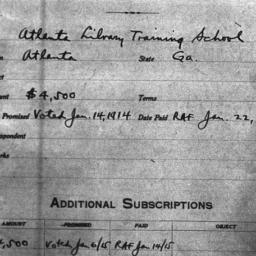 Atlanta Library Training School
Atlanta State Ga.
$4,500 Terms
Promised Voted Jan. 14, 1914 Date Paid RAF Jan. 22,
ADDITIONAL SUBSCRIPTIONS
AMOUNT PROMISED PAID OBJECT
,500 Voted Jan 6/15 RAF Jan 14/15